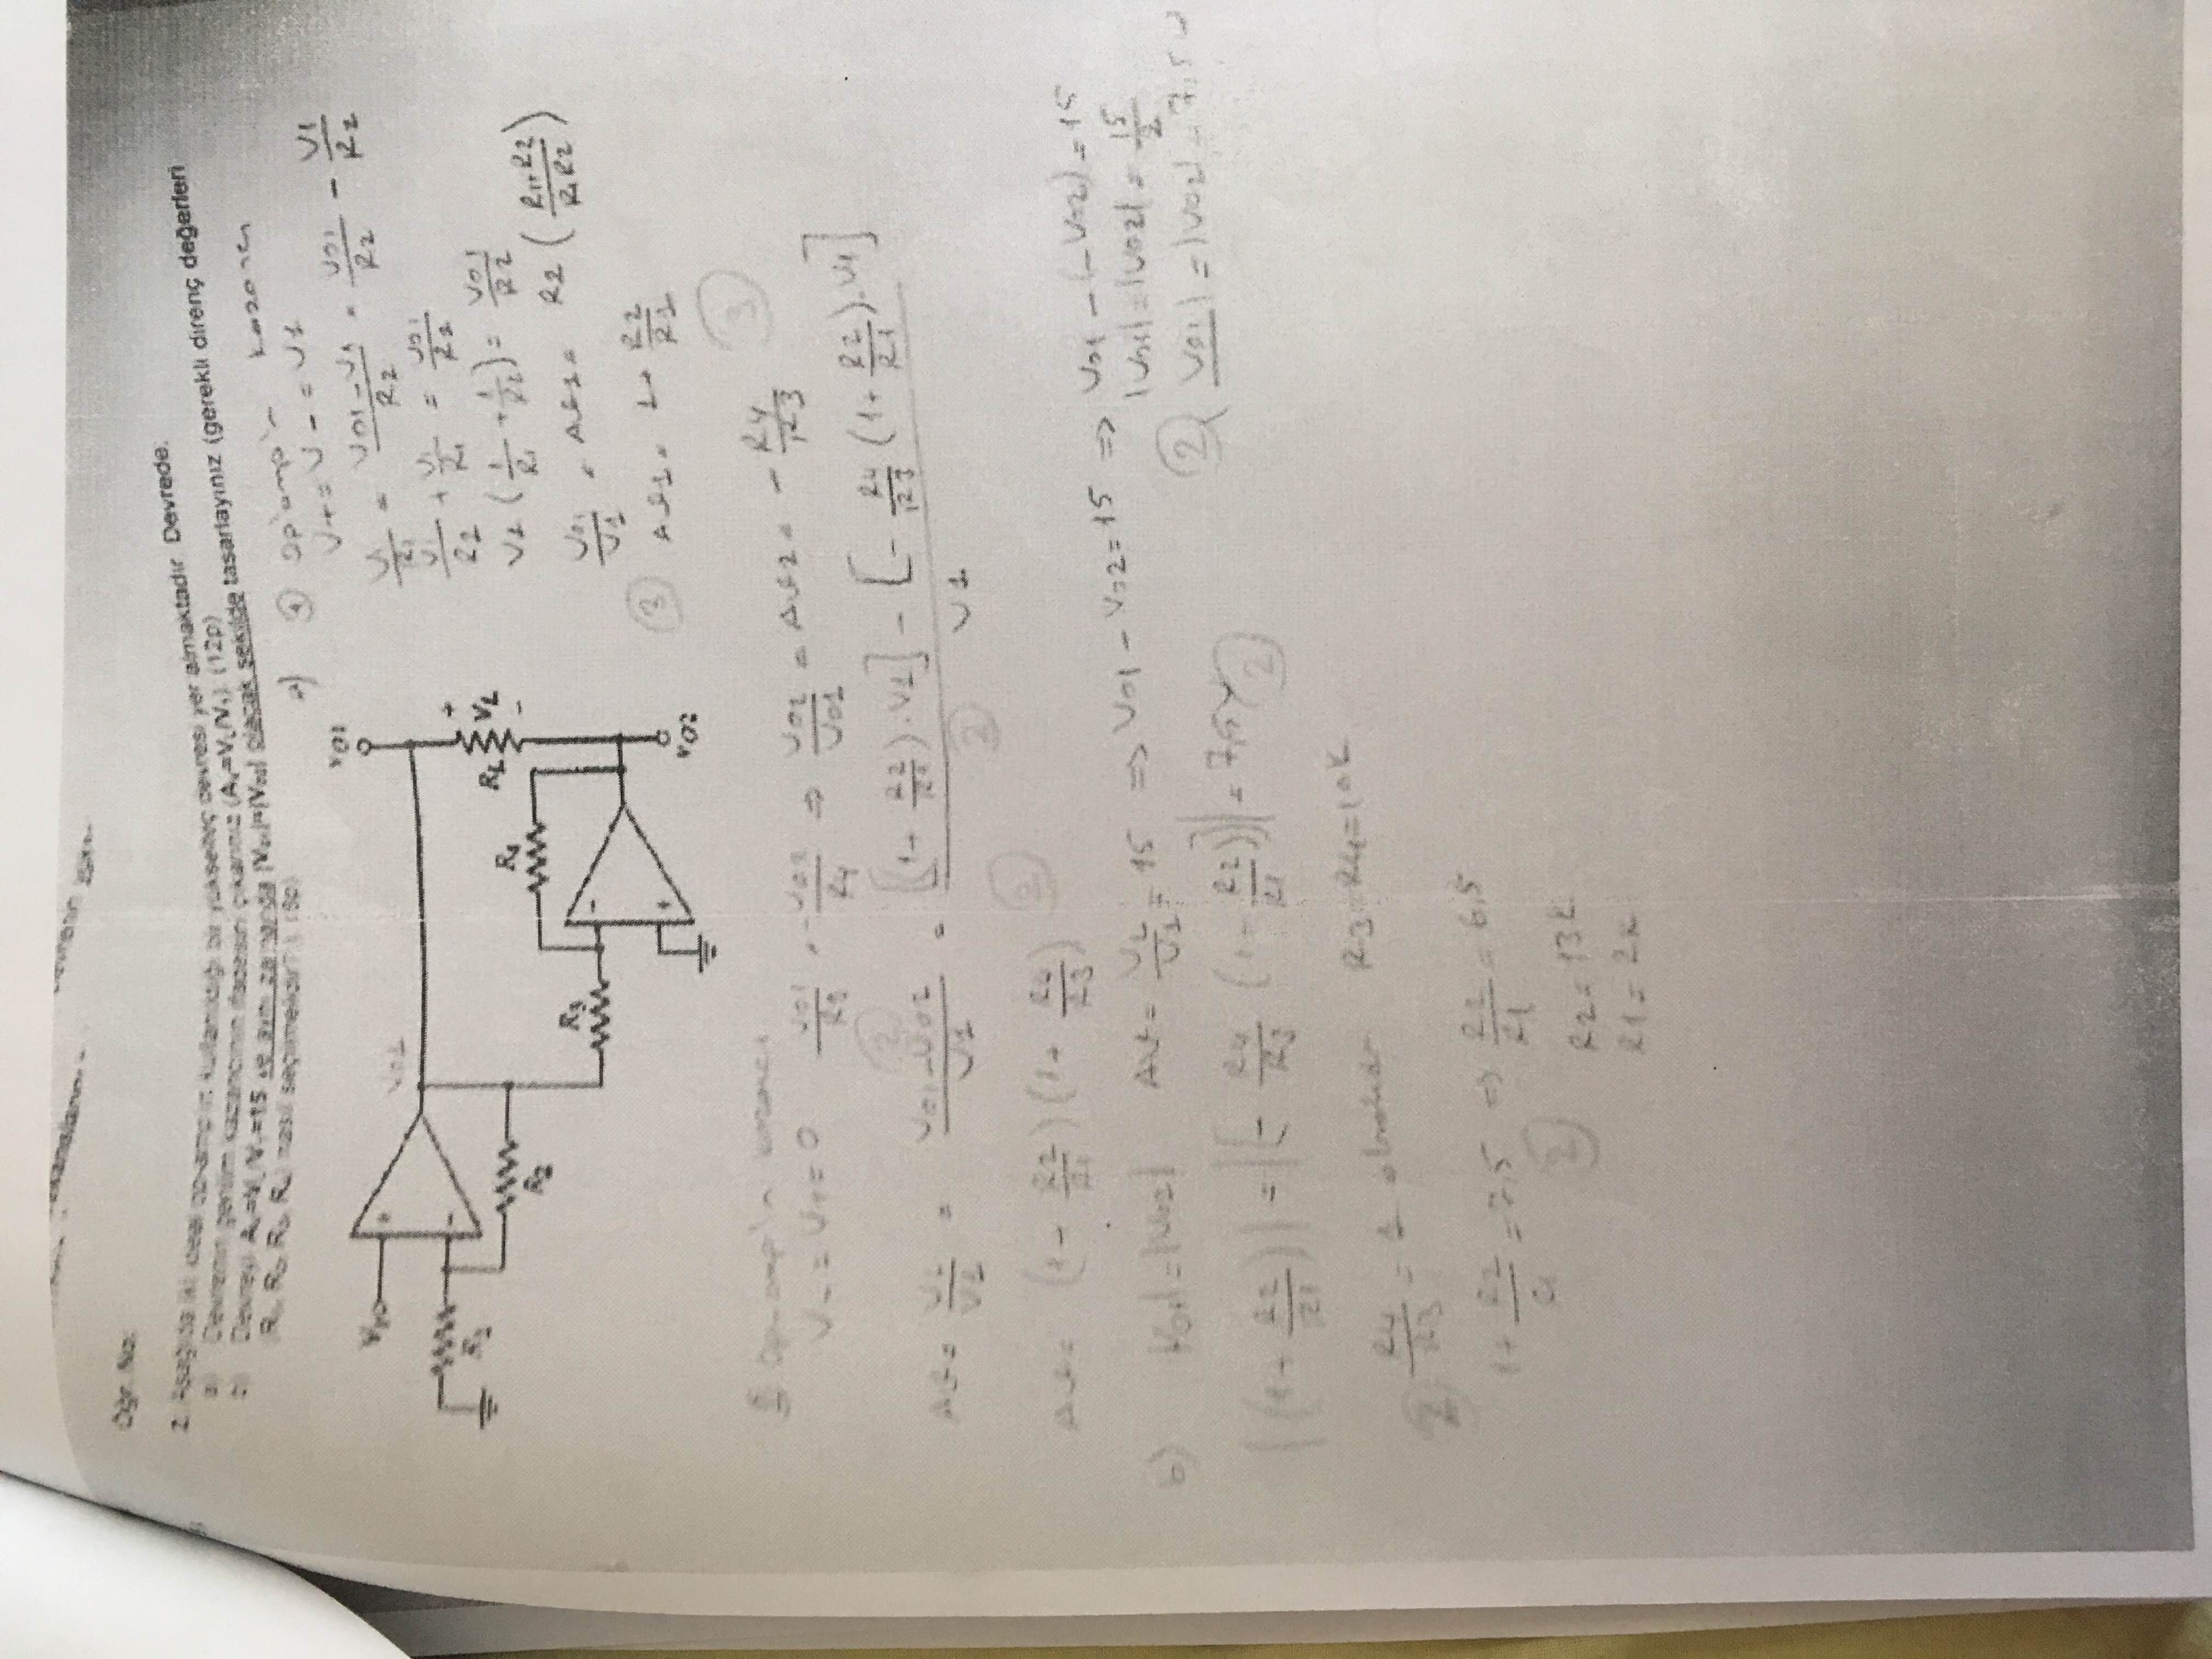 Devrenin
Öğr. No:
2. Aşağıda iki ideal op-amp'ın kullanıldığı bir yükselteç devresi yer almaktadır. Devrede,
a) Devrenin gerilim kazancının ifadesini çıkarınız (Av=VL/V1). (12p)
b) Devreyi Av=VL/V1=15 ve aynı zamanda |Vo1|=|Vo2| olacak şekilde tasarlayınız (gerekli direnç değerleri
(R1, R2, R3, R4) nasıl seçilmelidir? ). (8p)
a) 1 op-amp'ın kazancı
V+ = V- = V1
V1/R1 = (Vo1-V1)/R2 = Vo1/R2 - V1/R2
V1/R2 + V1/R1 = Vo1/R2
V1 (1/R1 + 1/R2) = Vo1/R2
Vo1/V1 = Av1 = R2 ((R1+R2)/(R1R2))
3 Av1 = 1+ R2/R1
VO1
V1
+
-
Vo1
R1
R2
R3
R4
RL
+
VL
-
-
+
VO2
op-amp'ın kazancı
V- = V+ = 0 Vo1/R3 = -Vo2/R4 ⇒ Vo2/Vo1 = Av2 = - R4/R3 3
Av = VL/V1 = (Vo1-Vo2)/V1 = ([(1+ R2/R1).V1] - [- R4/R3 (1+ R2/R1).V1])/V1
2
2
Av = (1+ R2/R1)(1+ R4/R3) 2
b) |Vo1|=|Vo2| Av = VL/V1 = 15 ⇒ Vo1 - Vo2 = 15 ⇒ Vo1 - (-Vo2) = 15
|Vo1| = |Vo2| = 15/2
2 |Vo1| = |Vo2| = 7,5 V
|(1+ R2/R1)| = |[- R4/R3 (1+ R2/R1)]| = 7,5V 2
2 R4/R3 = 1 olmalıdır R3=R4=10K
1+ R2/R1 = 7,5 ⇒ R2/R1 = 6,5
2
R2 = 13K
R1 = 2K